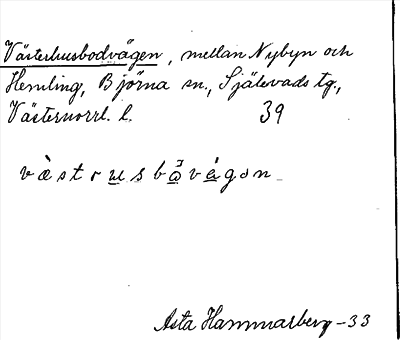 Västerhusbodvägen, mellan Nybyn och
Hemling, Björna sn., Själevads tg.,
Västernorrl. l. 39
væ̀strusbωvégən
Asta Hammarberg -33